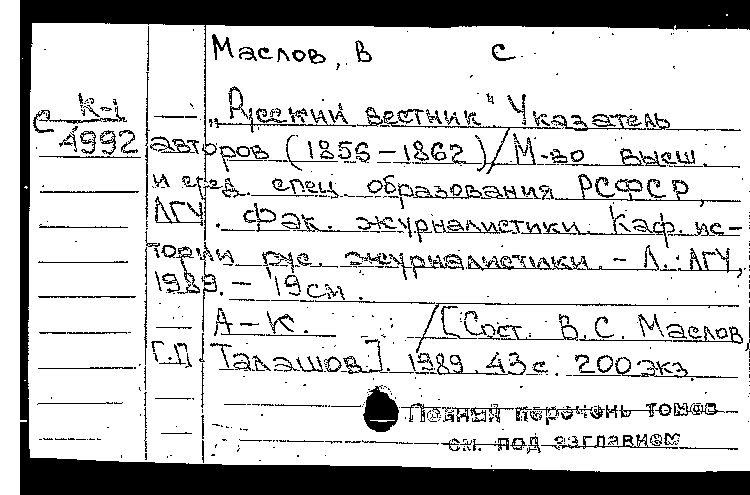 Маслов, В С
К-1
С 4992
„Русский вестник" Указатель
авторов (1856-1862)/М-во высш.
и сред. спец. образования РСФСР,
ЛГУ. Фак. журналистики. Каф. ис-
тории рус. журналистики. - Л.: ЛГУ,
1989. - 19см.
А-К. /[Сост. В.С. Маслов,
Г.П. Талашов]. 1989. 43с. 200экз.
Полный перечень томов
см. под заглавием